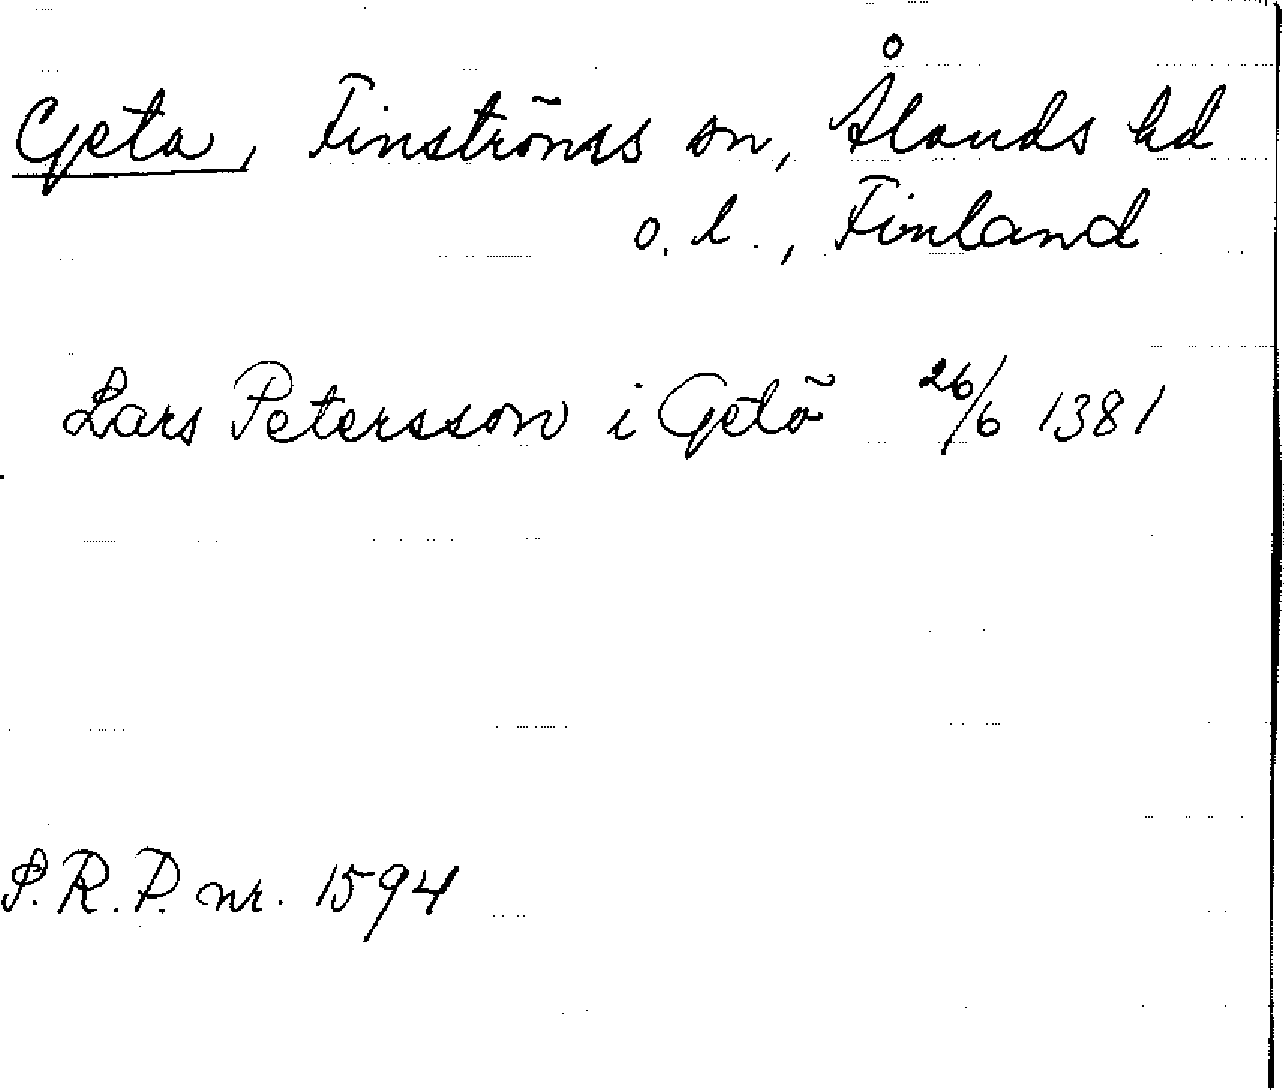 Geta, Finströms sn, Ålands hd
o. l., Finland
Lars Petersson i Getö 26/6 1381
S.R.P. nr. 1594